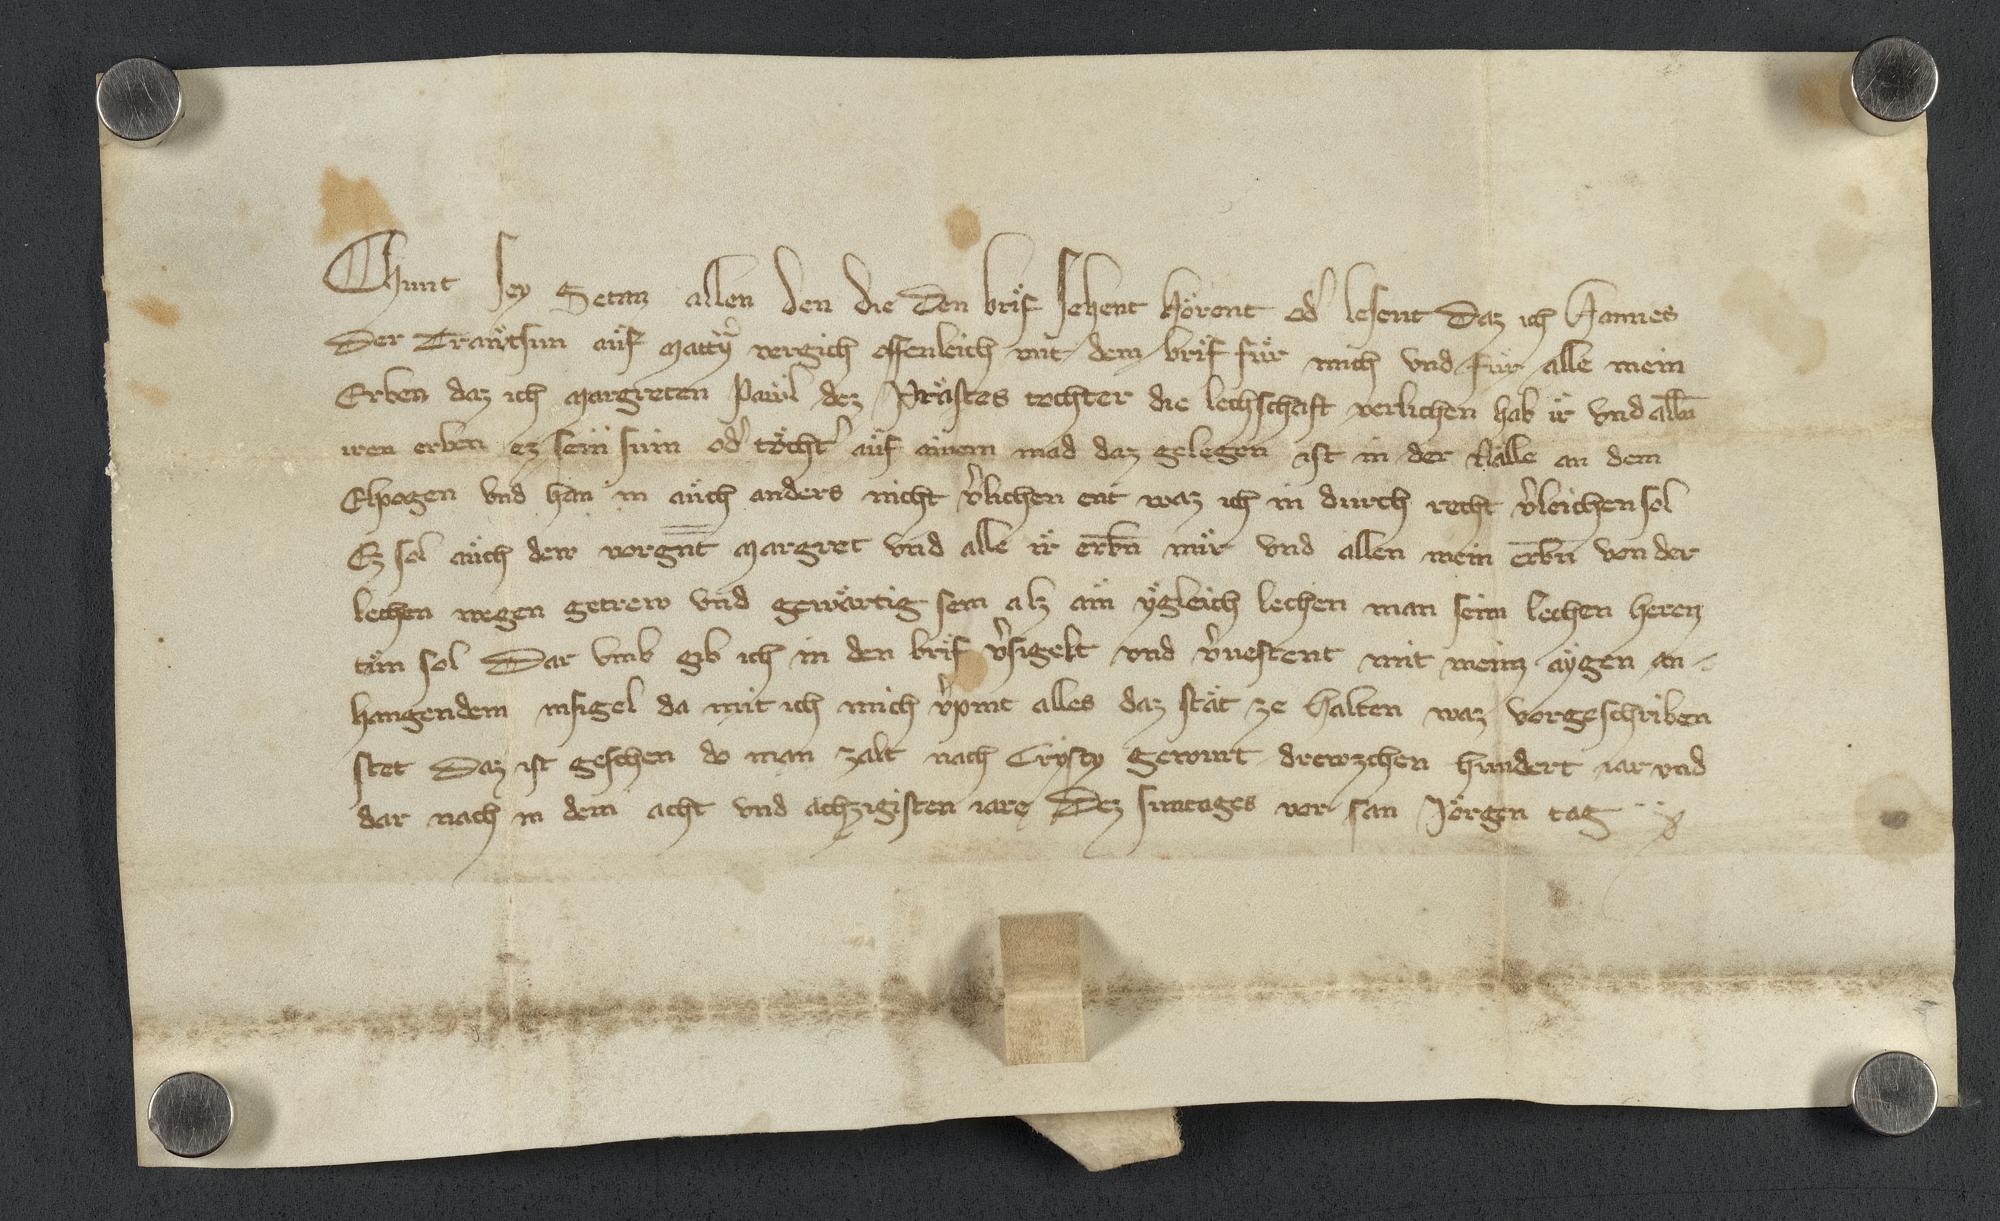 Chunt sey Getan allen den die Den brif sehent hörent od' lesent Daz ich Hannes
Der Trawtsun auf Matty vergich offenleich mit dem brif für mich vnd für alle mein
Erben daz ich Margreten Pawl dez Prästes tochter die lechschaft verlichen hab ir vnd alln
iren erben ez sein sün od' töcht' auf ainem mad daz gelegen ist in der Nälle an dem
Elpogen vnd han in auch anders nicht v'lichen ent waz ich in durch recht v'leichen sol
Ez sol auch dew vorgnt Margret vnd alle ir erbn mir vnd allen mein erbn von der
lechen wegen getrew vnd gewärtig sein alz ain ygleich lechen man seim lechen heren
tün sol Dar vmb gib ich in den brif v'sigelt vnd v'uestent mit meinz aygen an-
hangendem insigel da mit ich mich v'pint alles daz stät ze halten waz vorgeschriben
stet Daz ist geschen do man zalt nach Crysty gewurt drewzehen hundert iar vnd
dar nach in dem acht vnd achzigisten iare Dez suntages vor san Jörgen tag